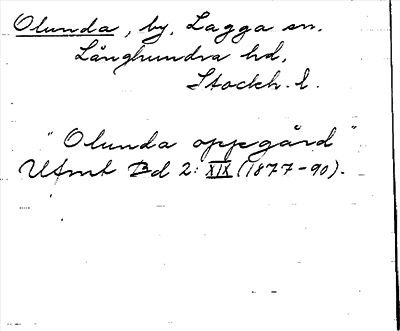 Olunda, by, Lagga sn.
Långhundra hd,
Stockh. l.
"Olunda oppegård"
Utmt Bd 2: XIX (1877-90).